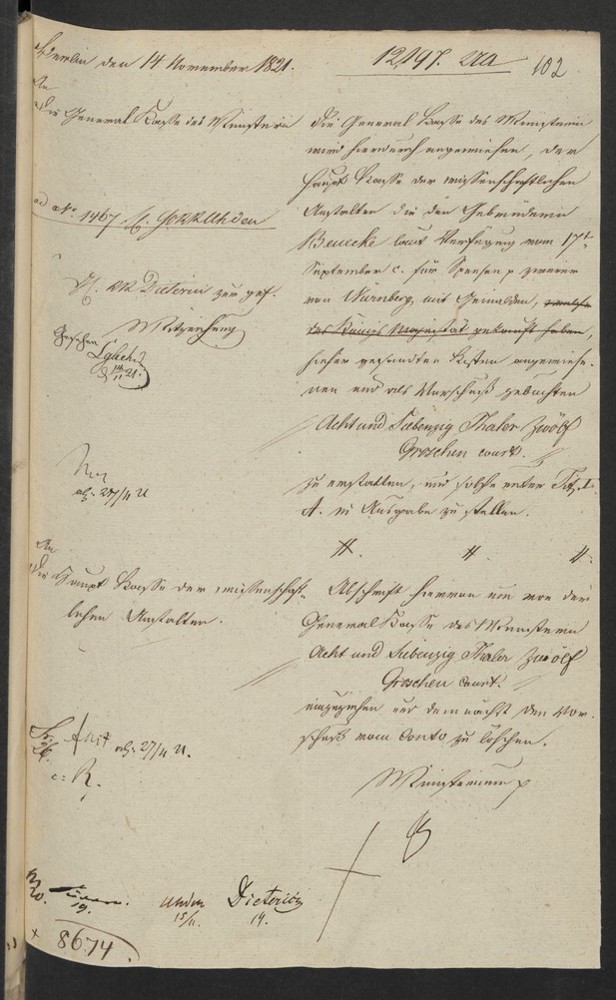 Berlin den 14 November 1821.
12,197. 
102
An
die General Kasse des Ministerii
ad No. 1467 Uhden
Dieterici zur gef.
Mitzeichnung
Gesehen
27/11 21
Die General Kasse des Ministerii
wird hierdurch angewiesen, der
Haupt Kasse der wissenschaftlichen
Anstalten die den Gebrüdern
Benecke laut Verfügung vom 17t
September c. für Spesen p zweier
von Nürnberg mit Gemälden, welche
des Königs Majestät gekauft haben,
hieher gesandten Kisten angewiese-
nen und als Vorschuß gebuchten
Acht und Siebenzig Thaler Zwölf
Groschen court.
zu erstatten, und solche unter Tit. I.
A. in Ausgabe zu stellen.
An
die Haupt Kasse der wissenschaft-
lichen Anstalten.
Abschrift hiervon um von der
General Kasse des Ministerii
Acht und Siebenzig Thaler Zwölf
Groschen Court.
einzuziehen und demnächst den Vor-
schuß vom Conto zu löschen.
Ministerium p
27/11 21.
19.
Uhden
15/11.
Dieterici
14.
8674